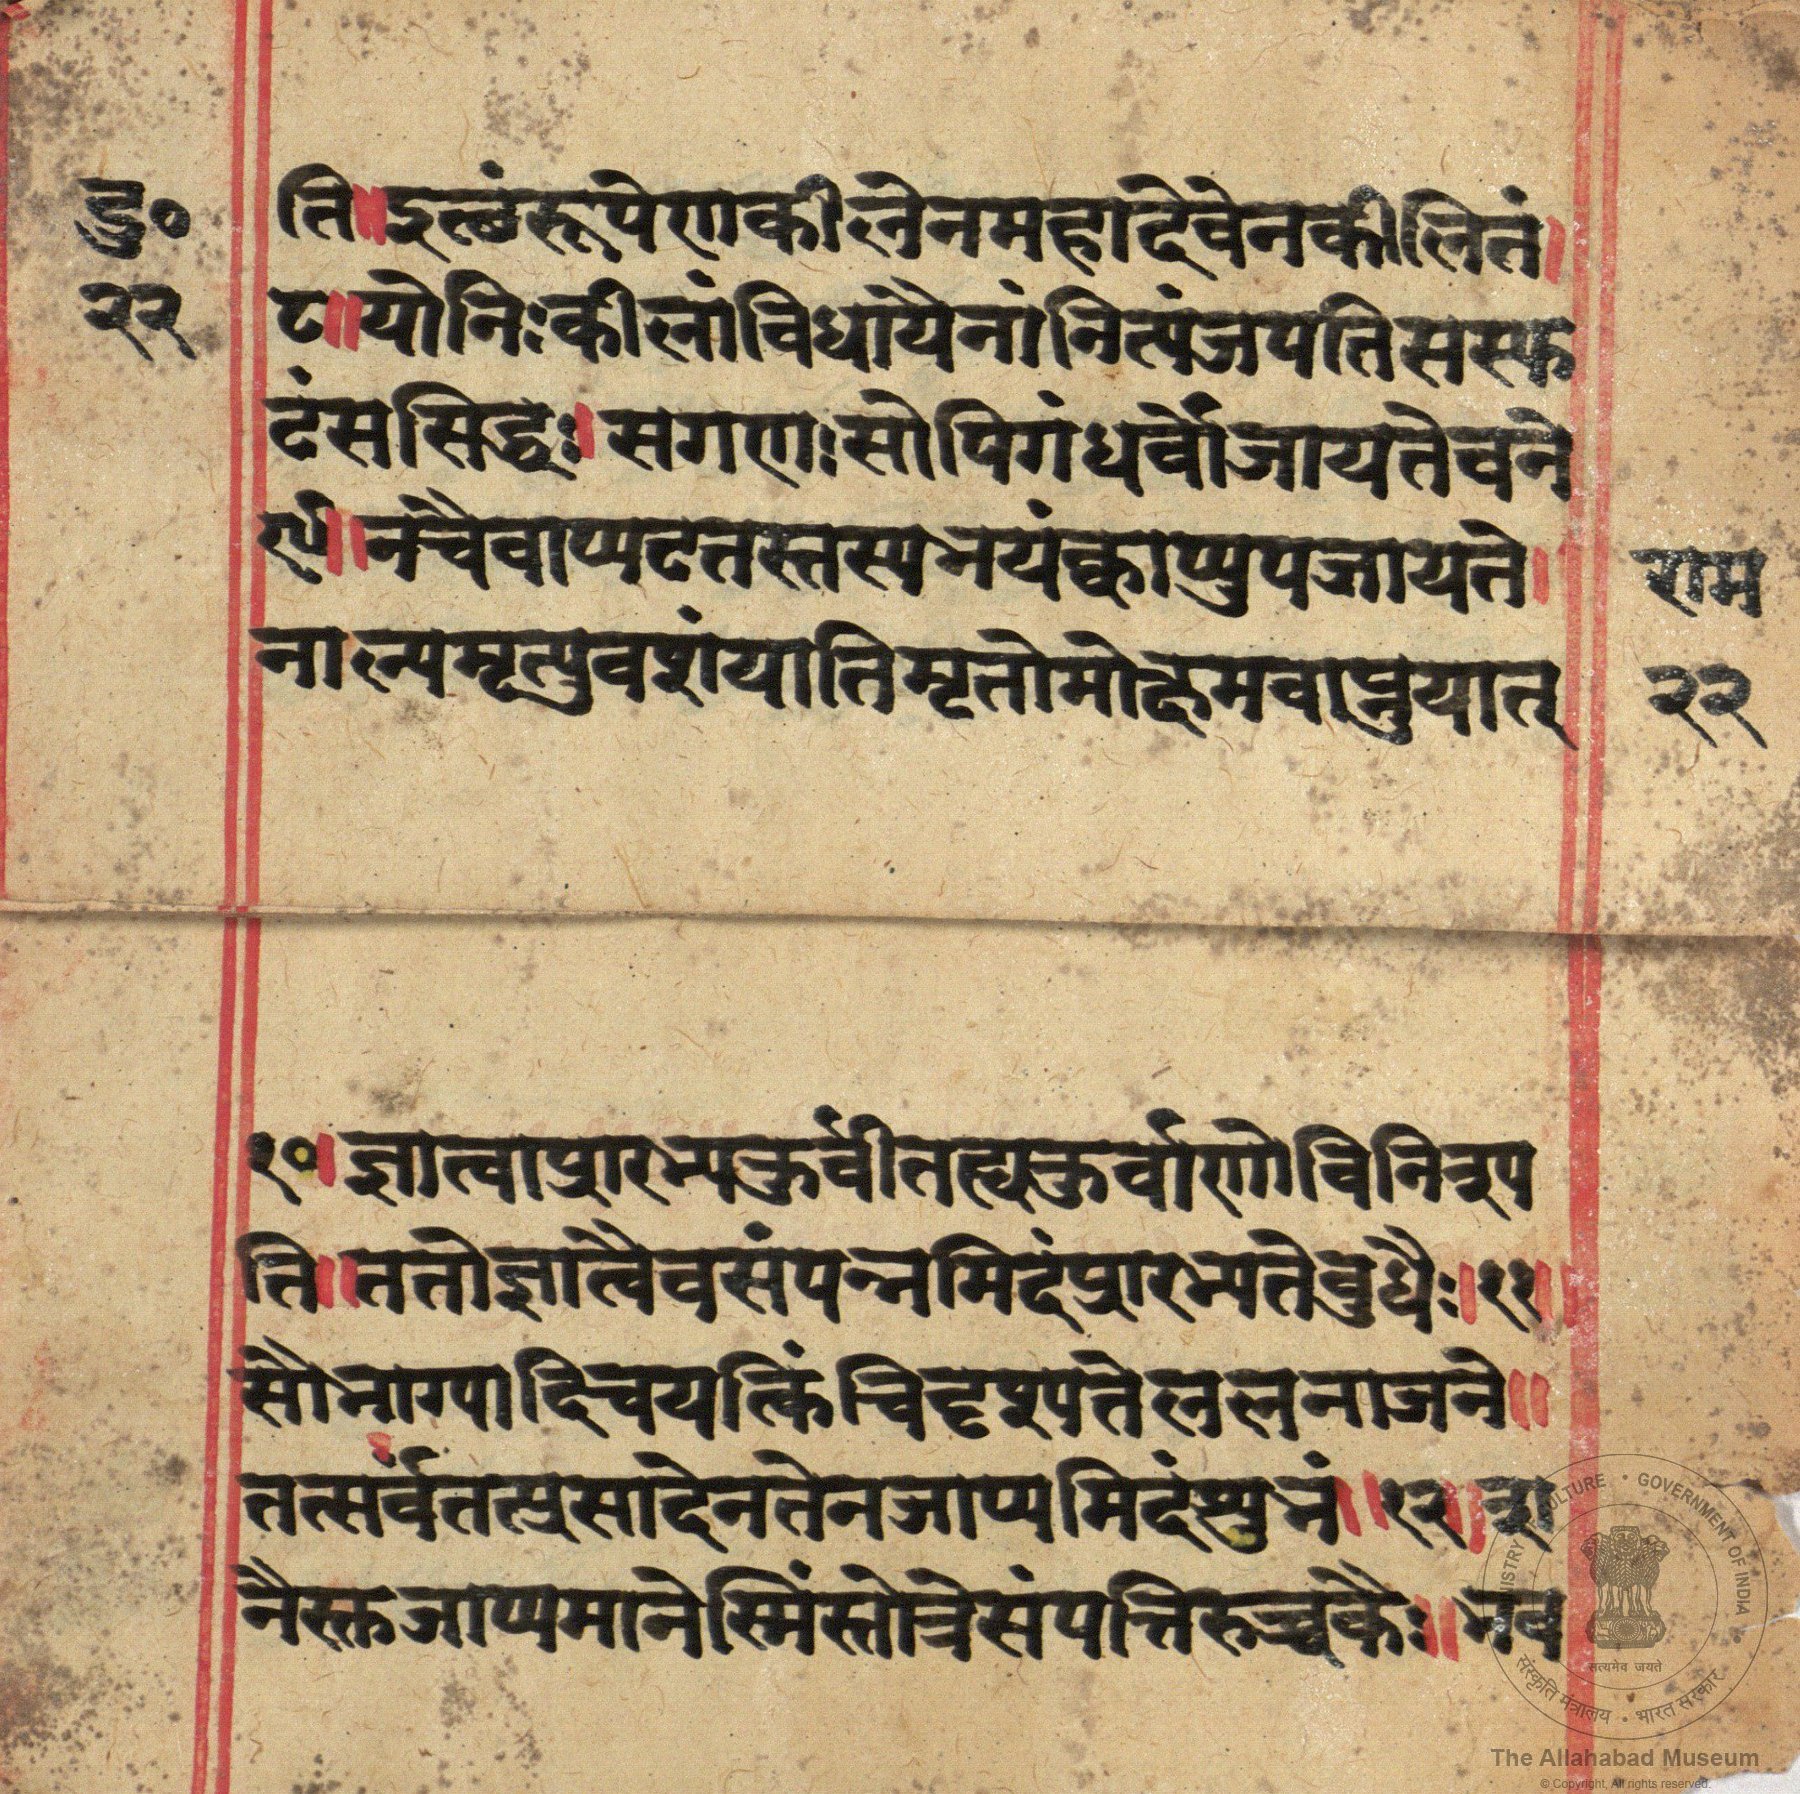 दु०
२२
ति॥इत्थंरूपेणकीलेनमहादेवेनकीलितं।
८॥योनिःकीलांविधायैनांनित्यंजपतिसस्फु
टंससिद्धः।सगणःसोपिगंधर्वोजायतेवने
ध्रु॥नचैवाप्पटतस्तस्यभयंक्वाप्युपजायते।
नाल्पमृत्युवशंयातिमृतोमोक्षमवाप्नुयात्
राम
२२
१०।ज्ञात्वाप्रारभ्यकुर्वीतह्यकुर्वाणोविनिश्प
ति॥ततोज्ञात्वैवसंपन्नमिदंप्रारभ्यतेबुधैः।११॥
सौभाग्यादिचयत्किंचिदृश्यतेललनाजने॥
तत्सर्वंतत्प्रसादेनतेनजाप्यमिदंशुभं॥१२॥
नैस्तजाप्यमानेस्मिंस्तोत्रेसंपत्तिरुच्चकैः॥भव
MINISTRY OF CULTURE • GOVERNMENT OF INDIA •
सत्यमेव जयते
संस्कृति मंत्रालय • भारत सरकार
The Allahabad Museum
© Copyright, All rights reserved.